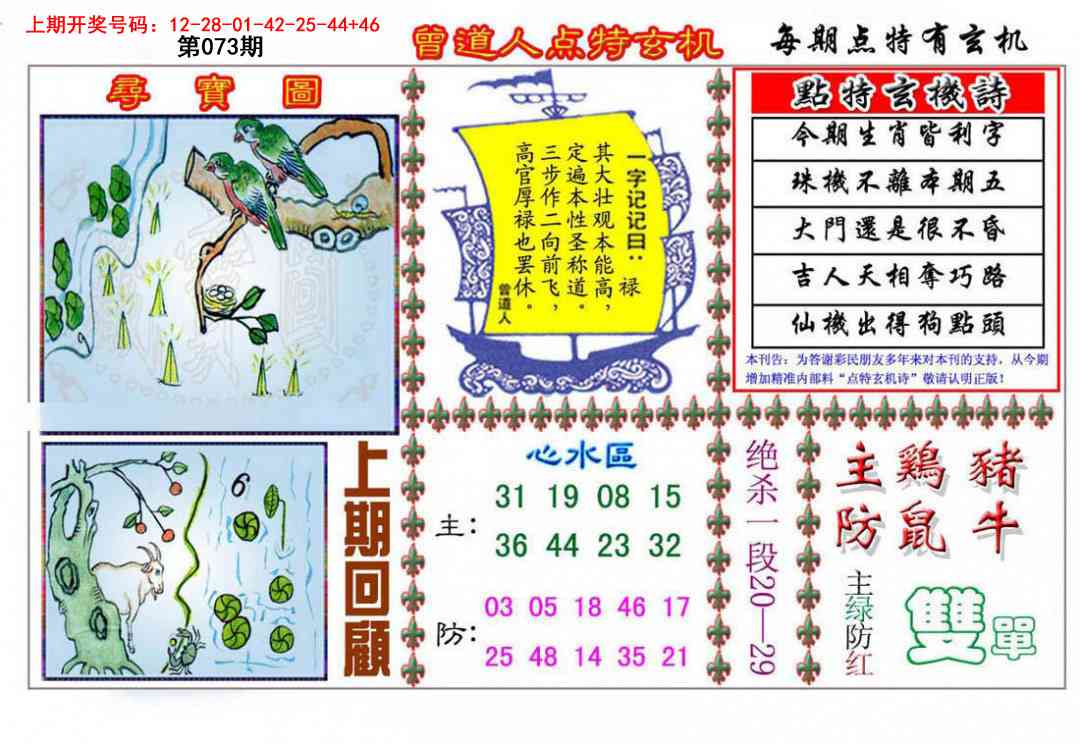 上期开奖号码：12-28-01-42-25-44+46
第073期
曾道人点特玄机
每期点特有玄机
尋寶圖
一字记记曰：禄
其大壮观本能高，
定遍本性圣称道。
三步作二向前飞，
高官厚禄也罢休。
曾道人
點特玄機詩
今期生肖皆利字
珠機不離本期五
大門還是很不昏
吉人天相奪巧路
仙機出得狗點頭
本刊告：为答谢彩民朋友多年来对本刊的支持，从今期
增加精准内部料“点特玄机诗”敬请认明正版！
6
上期回顧
心水區
主：
31 19 08 15
36 44 23 32
防：
03 05 18 46 17
25 48 14 35 21
绝杀一段20—29
主鷄豬
防鼠牛
主绿防红
雙單